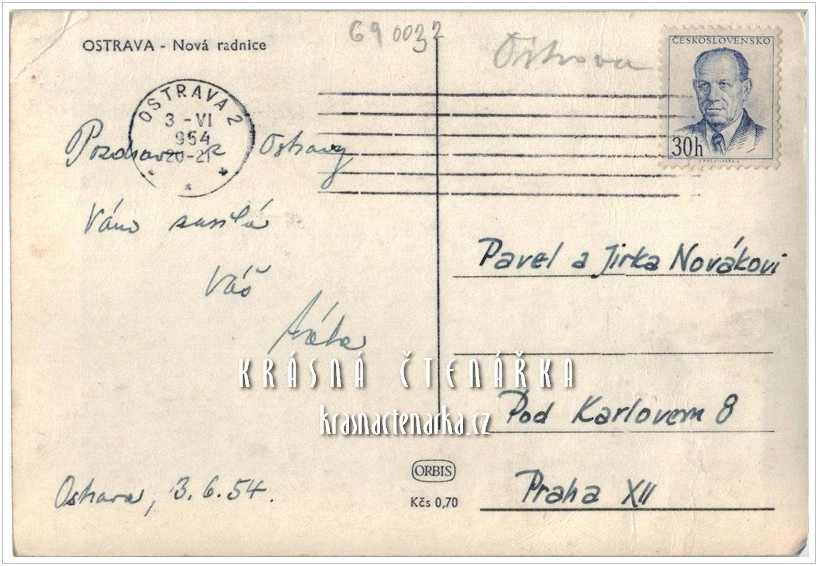 690032
Ostrava
OSTRAVA - Nová radnice
ČESKOSLOVENSKO
30h
OSTRAVA 2
3 -VI
954
20-21
Pozdrav z Ostravy
Vám zasílá
Váš
Pavel a Jirka Novákovi
KRÁSNÁ ČTENÁŘKA
krasnactenarka.cz
Pod Karlovem 8
Praha XII
Ostrava, 3.6.54.
ORBIS
Kčs 0,70